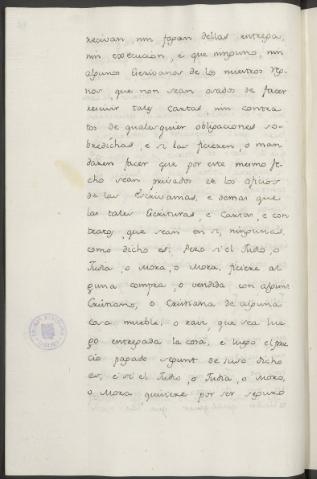 recivan, nin fagan dellas entrega,
nin execucion, e que ninguno, nin
algunos Escrivanos de los nuestros Reg-
nos, que non sean osados de facer
recivir tales Cartas, nin contra-
tos de qualesquier obligaciones so-
bredichas, e si las ficieren, o man-
daren facer que por este mesmo fe-
cho sean privados de los oficios
de las Escrivanias, e demas que
las tales Escrituras e Cartas, e con-
tratos, que sean en si, ningunas,
como dicho es. Pero si el Judio, o
Judia, o Moro, o Mora, ficiere al-
guna compra o vendida con algunt
Cristiano, o Cristiana de alguna
cosa mueble, o raiz, que sea lue-
go entregada la cosa, e luego el pre-
cio pagado segunt de suso dicho
es, e si el Judio, o Judia, o Moro,
o Mora quisiere por ser seguro